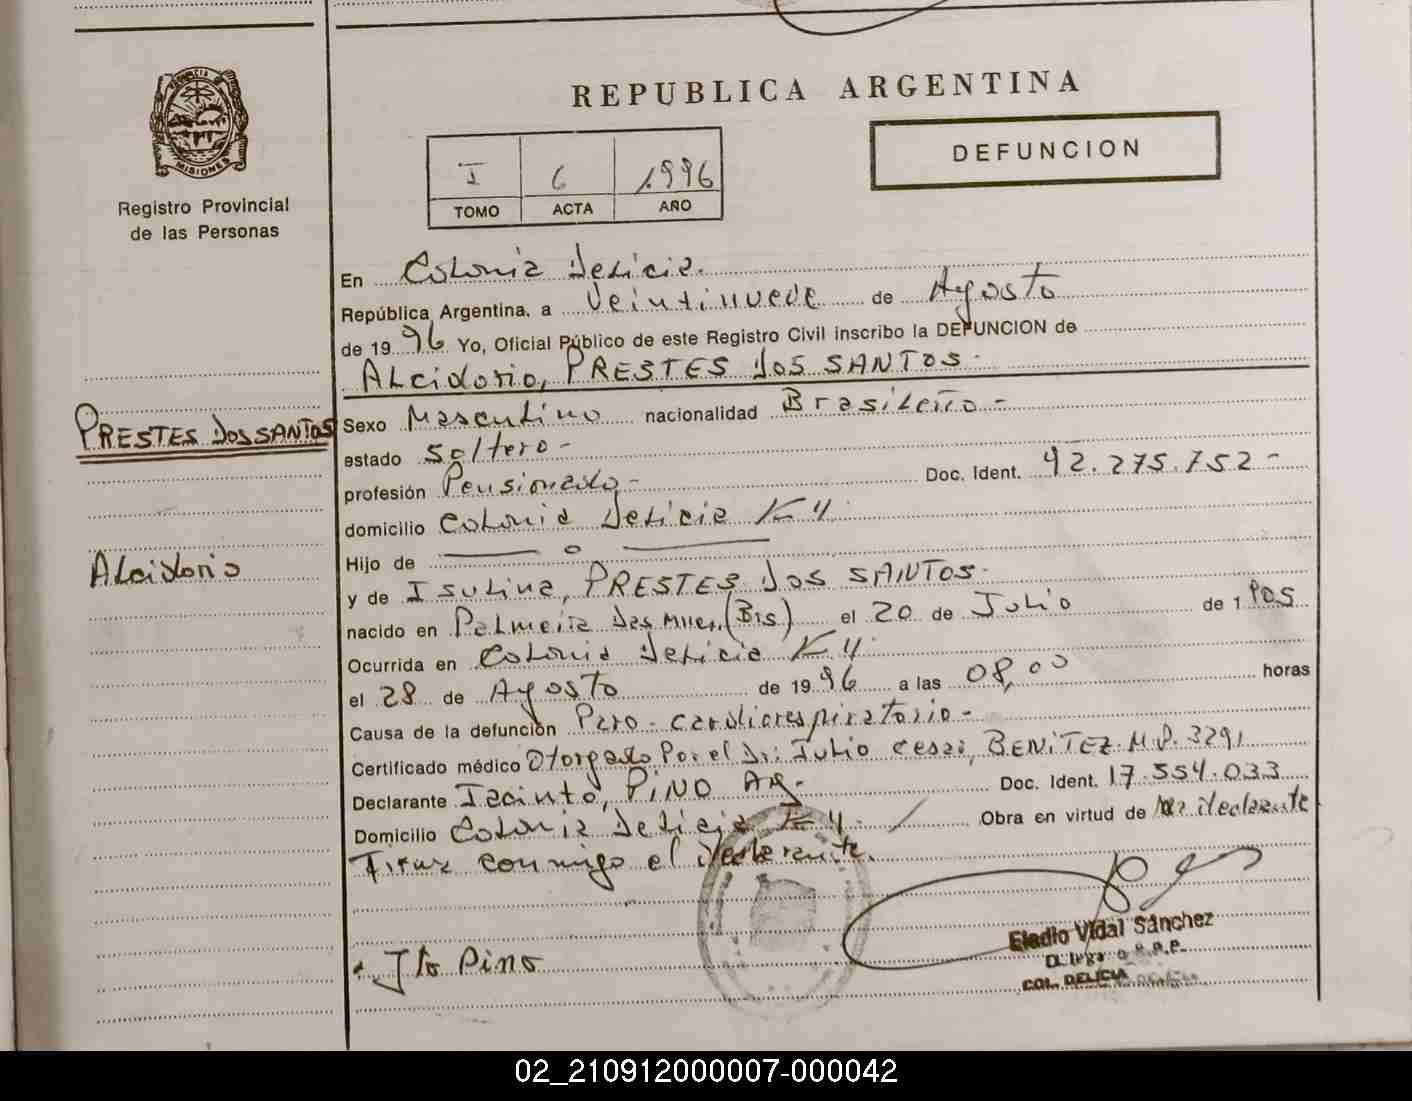 REPUBLICA ARGENTINA
PROVINCIA
MISIONES
Registro Provincial
de las Personas
I 6 1996
TOMO ACTA AÑO
DEFUNCION
En Colonia Delicia.
República Argentina. a Veintinueve de Agosto
de 1996 Yo, Oficial Público de este Registro Civil inscribo la DEFUNCION de
Alcidorio, PRESTES DOS SANTOS-
PRESTES DOS SANTOS
Alcidorio
Sexo Masculino nacionalidad Brasileño-
estado Soltero-
profesión Pensionado- Doc. Ident. 92.275.752-
domicilio Colonia Delicia K 4
Hijo de — o —
y de Isulina, PRESTES DOS SANTOS-
nacido en Palmeira Das (Brs) el 20 de Julio de 1905
Ocurrida en Colonia Delicia K 4
el 28 de Agosto de 1996 a las 08,00 horas
Causa de la defunción Paro-cardiorespiratorio-
Certificado médico Otorgado Por el Dr: Julio Cesar, BENITEZ M.P. 3291
Declarante Jacinto, PINO Doc. Ident. 17.554.033
Domicilio Colonia Delicia K 4- Obra en virtud de declarante
Firma conmigo el declarante.
Jto Pino
Eladio Vidal Sánchez
COL. DELICIA
02_210912000007-000042